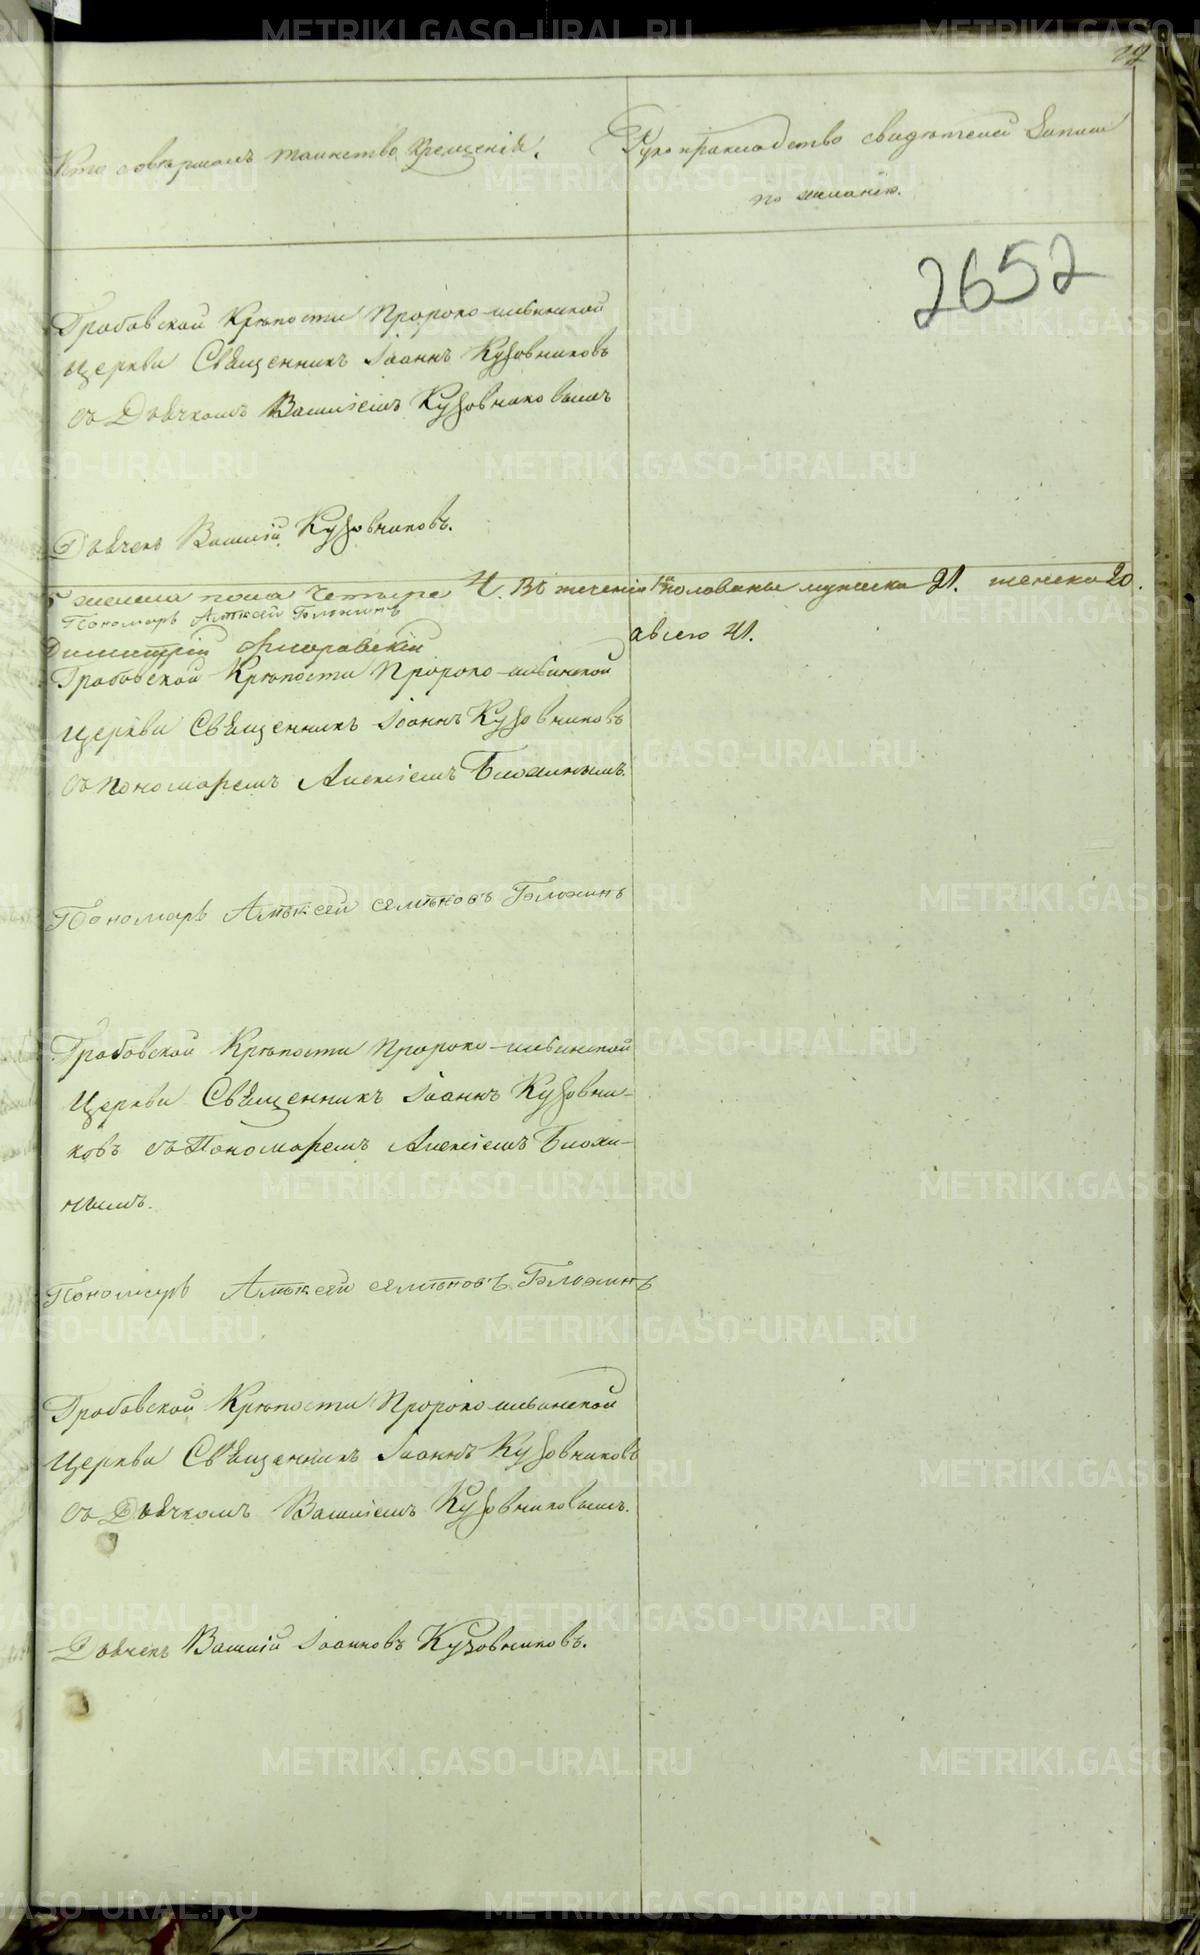 Кто совершалъ таинство Крещенія.
Рукоприкладство свидѣтелей записи
по желанію.
2652
Грабовской Крѣпости Пророко-ильинской
Церкви Священникъ Іоаннъ Кузовниковъ
съ Дьячкомъ Василіемъ Кузовниковымъ
Дьячекъ Василій Кузовниковъ.
женска пола Четыре 4. Въ теченіи 1й половины мужеска 21. женска 20.
Пономарь Алѣксей Блохинъ
а всего 41.
Димитрій Флоравскій
Грабовской Крѣпости Пророко-ильинской
Церкви Священникъ Іоаннъ Кузовниковъ
съ Пономаремъ Алексіемъ Блохинымъ.
Пономарь Алѣксей семѣновъ Блохинъ
Грабовской Крѣпости Пророко-ильинской
Церкви Священникъ Іоаннъ Кузовни-
ковъ съ Пономаремъ Алексіемъ Блохи-
нымъ.
Пономарь Алѣксей семѣновъ Блохинъ
Грабовской Крѣпости Пророко-ильинской
Церкви Священникъ Іоаннъ Кузовниковъ
съ Дьячкомъ Василіемъ Кузовниковымъ.
Дьячекъ Василій Іоанновъ Кузовниковъ.
METRIKI.GASO-URAL.RU